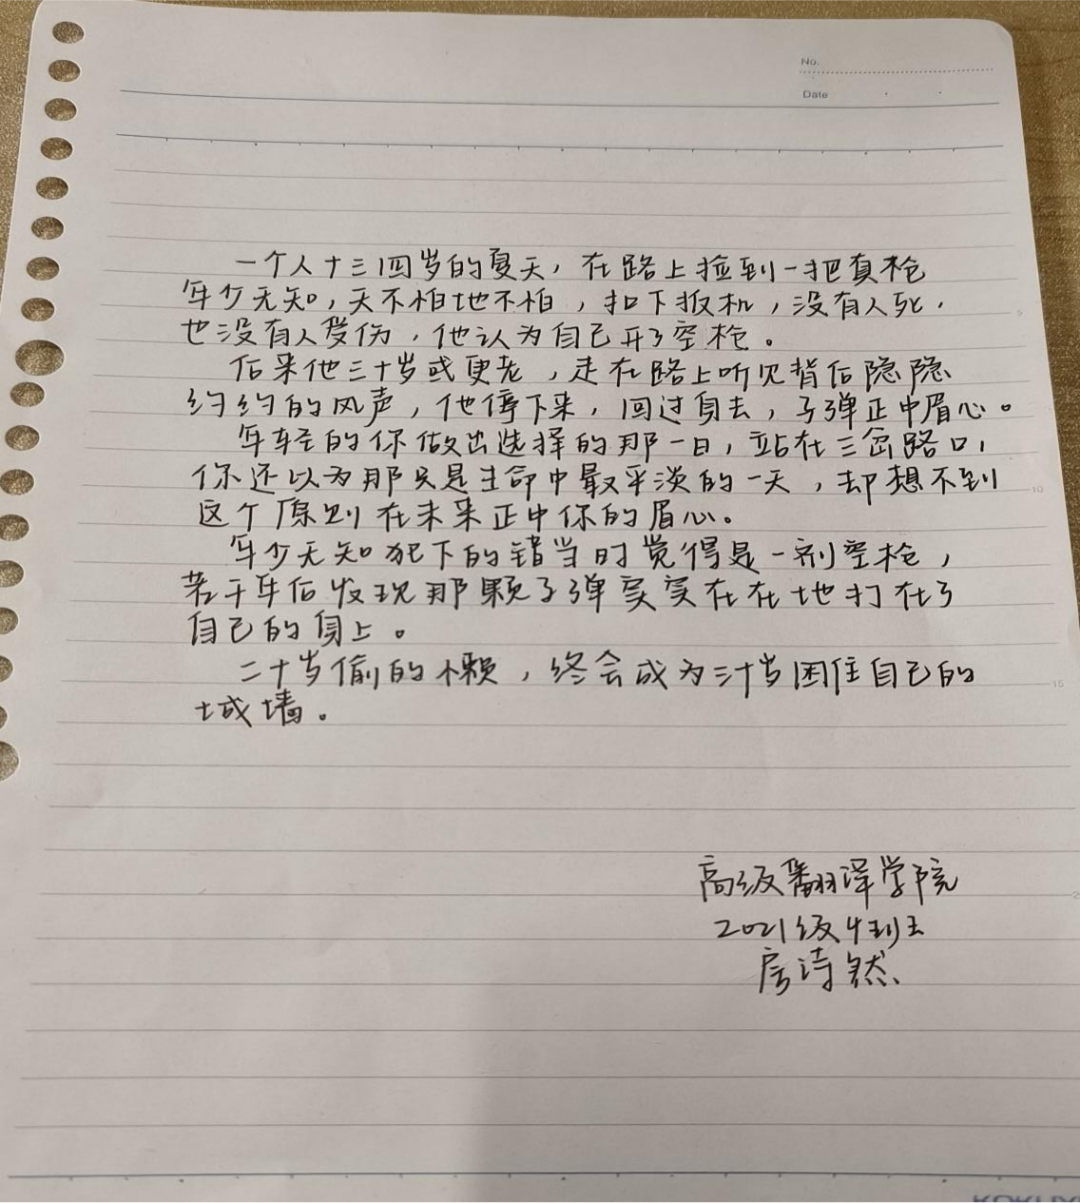 No.
Date
一个人十三四岁的夏天，在路上捡到一把真枪
年少无知，天不怕地不怕，扣下扳机，没有人死，
也没有人受伤，他认为自己开了空枪。
后来他三十岁或更老，走在路上听见背后隐隐
约约的风声，他停下来，回过身去，子弹正中眉心。
年轻的你做出选择的那一日，站在三岔路口，
你还以为那只是生命中最平淡的一天，却想不到
这个原则在未来正中你的眉心。
年少无知犯下的错当时觉得是一剂空枪，
若干年后发现那颗子弹实实在在地打在了
自己的身上。
二十岁偷的懒，终会成为三十岁困住自己的
城墙。
高级翻译学院
2021级4班
房诗然